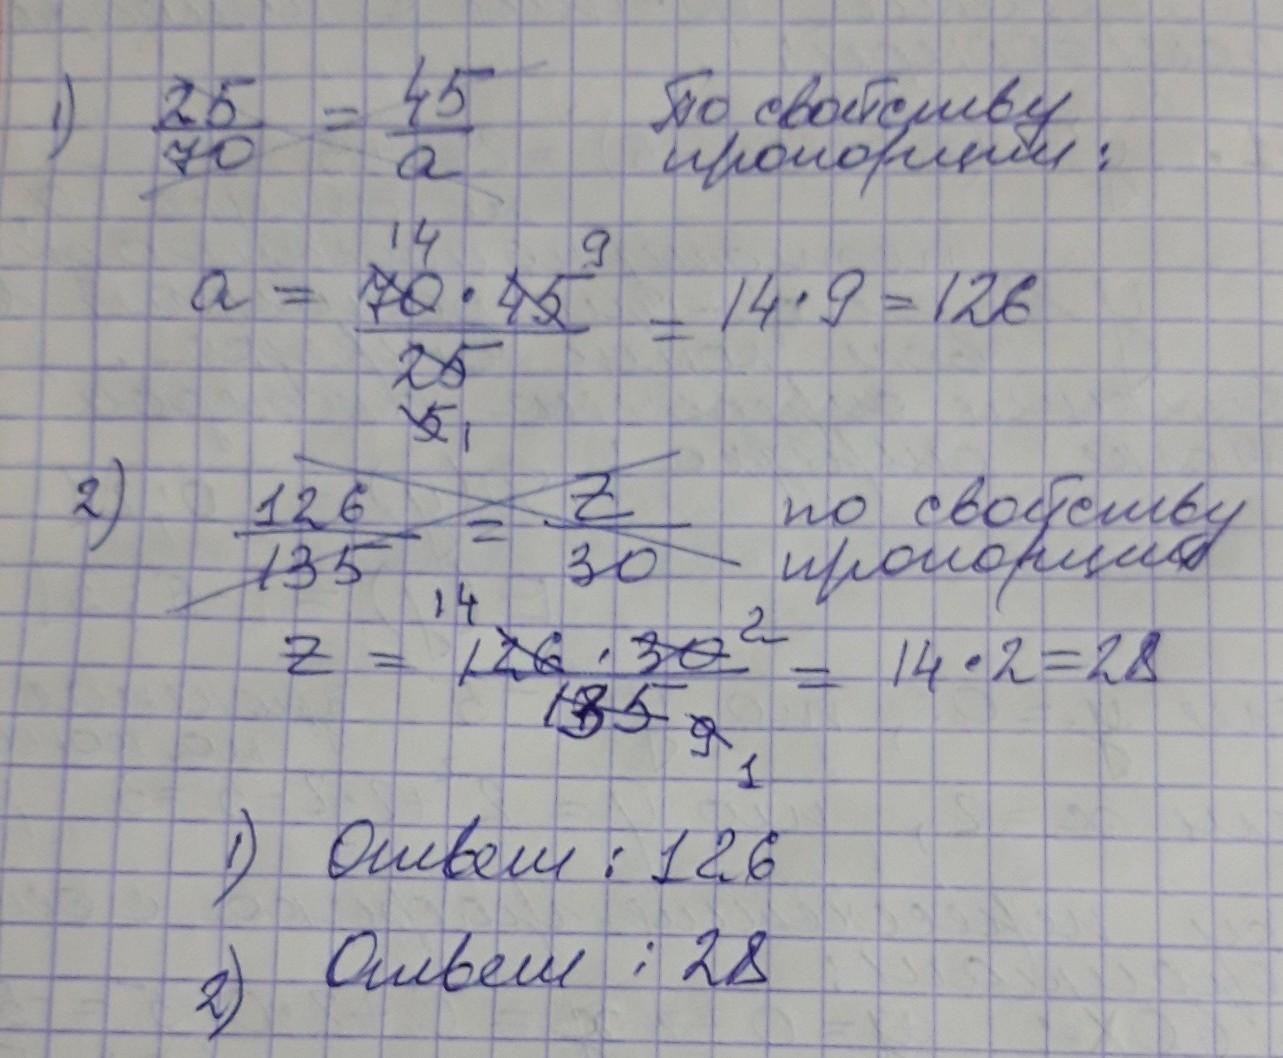 1) 25/70 = 45/a По свойству
пропорции:
14 9
a = 70 · 45 / 25 = 14 · 9 = 126
5 1
2) 126/135 = Z/30 по свойству
пропорции
14 2
Z = 126 · 30 / 135 = 14 · 2 = 28
9 1
1) Ответ : 126
2) Ответ : 28